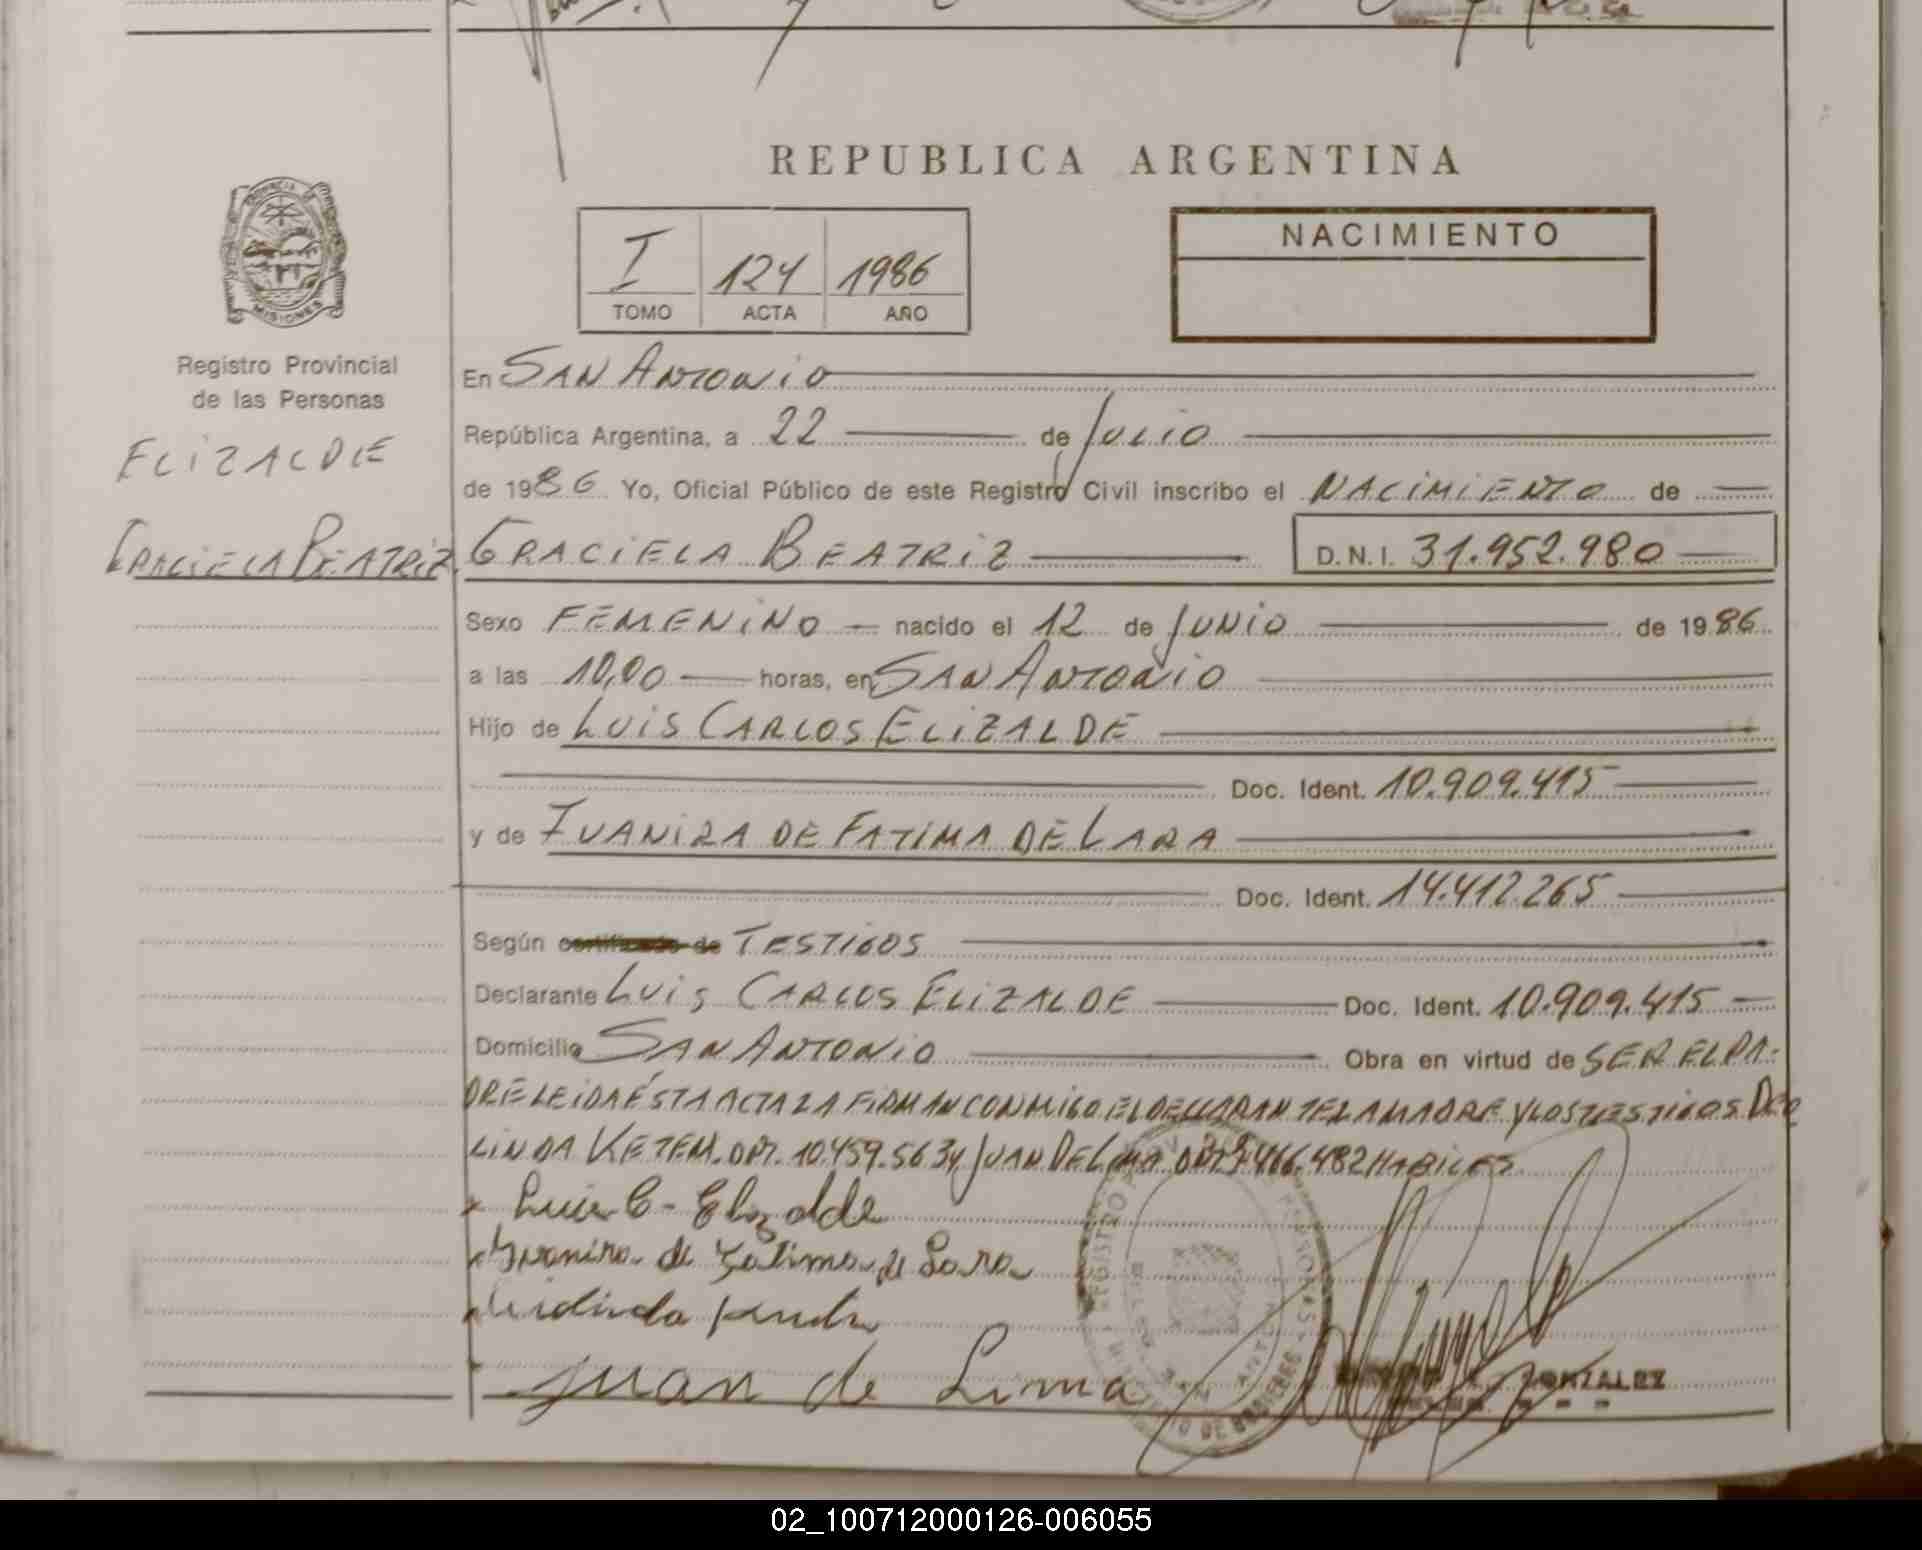 REPUBLICA ARGENTINA
PROVINCIA DE
MISIONES
I 124 1986
TOMO ACTA AÑO
NACIMIENTO
Registro Provincial
de las Personas
ELIZALDE
GRACIELA BEATRIZ
En SAN ANTONIO
República Argentina, a 22 de JULIO
de 1986 Yo, Oficial Público de este Registro Civil inscribo el NACIMIENTO de
GRACIELA BEATRIZ D.N.I. 31.952.980
Sexo FEMENINO nacido el 12 de JUNIO de 1986
a las 10,00 horas, en SAN ANTONIO
Hijo de LUIS CARLOS ELIZALDE
Doc. Ident. 10.909.415
y de IVANIRA DE FATIMA DE LARA
Doc. Ident. 14.412.265
Según certificado de TESTIGOS
Declarante LUIS CARLOS ELIZALDE Doc. Ident. 10.909.415
Domicilio SAN ANTONIO Obra en virtud de SER EL PA-
DRE LEIDA ÉSTA ACTA LA FIRMAN CONMIGO EL DECLARANTE LA MADRE Y LOS TESTIGOS
LINDA KETEM. 10.459.563 y JUAN DE LIMA 466.482 HABILES
Luis C. Elizalde
Ivanira de Fatima de Lara
Juan de Lima
GONZALEZ
02_100712000126-006055